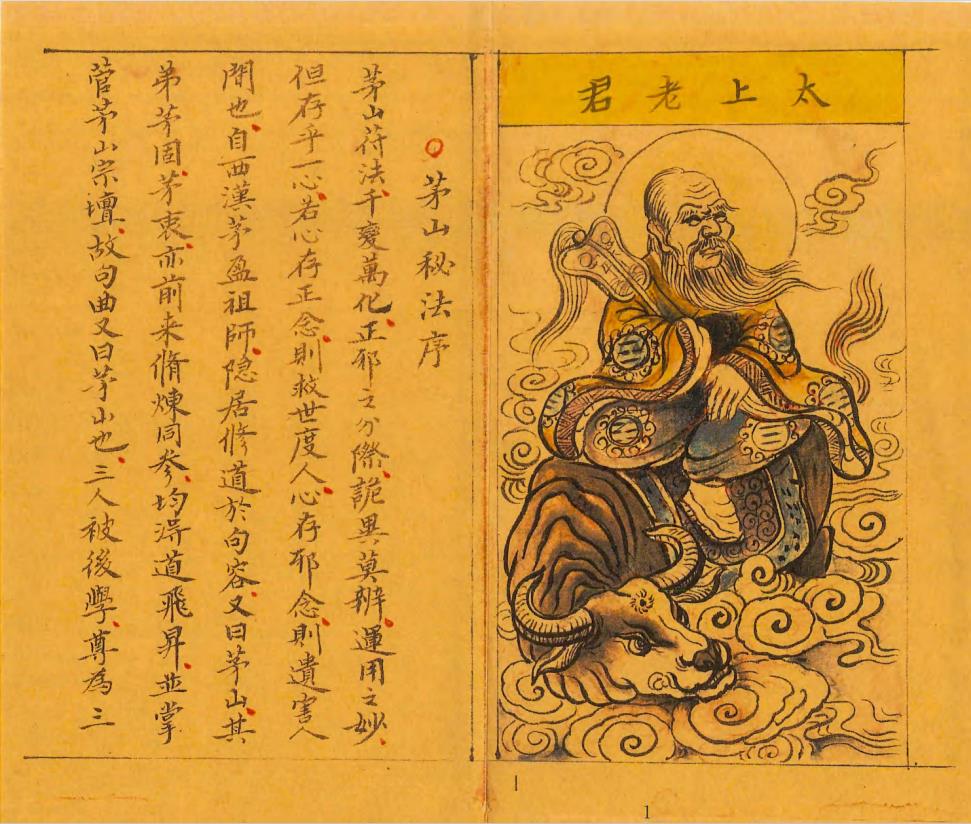 太上老君
茅山秘法序
茅山符法、千變萬化、正邪之分際、詭異莫辨、運用之妙、
但存乎一心、若心存正念、則救世度人、心存邪念、則遺害人
間也、自西漢茅盈祖師、隐居修道於句容、又曰茅山、其
弟茅固、茅衷、亦前来脩煉同參、均得道飛昇、並掌
管茅山宗壇、故句曲又曰茅山也、三人被後學、尊為三
1